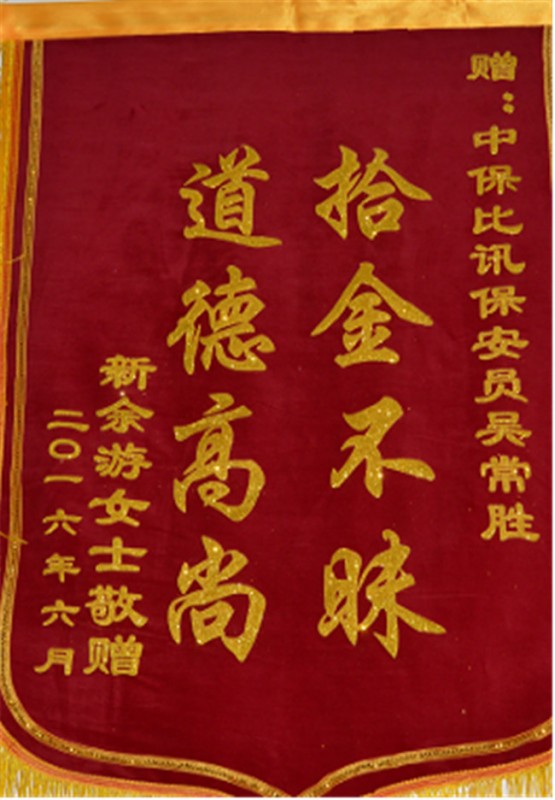 赠：中保比讯保安员吴常胜
拾金不昧
道德高尚
新余游女士敬赠
二〇一六年六月